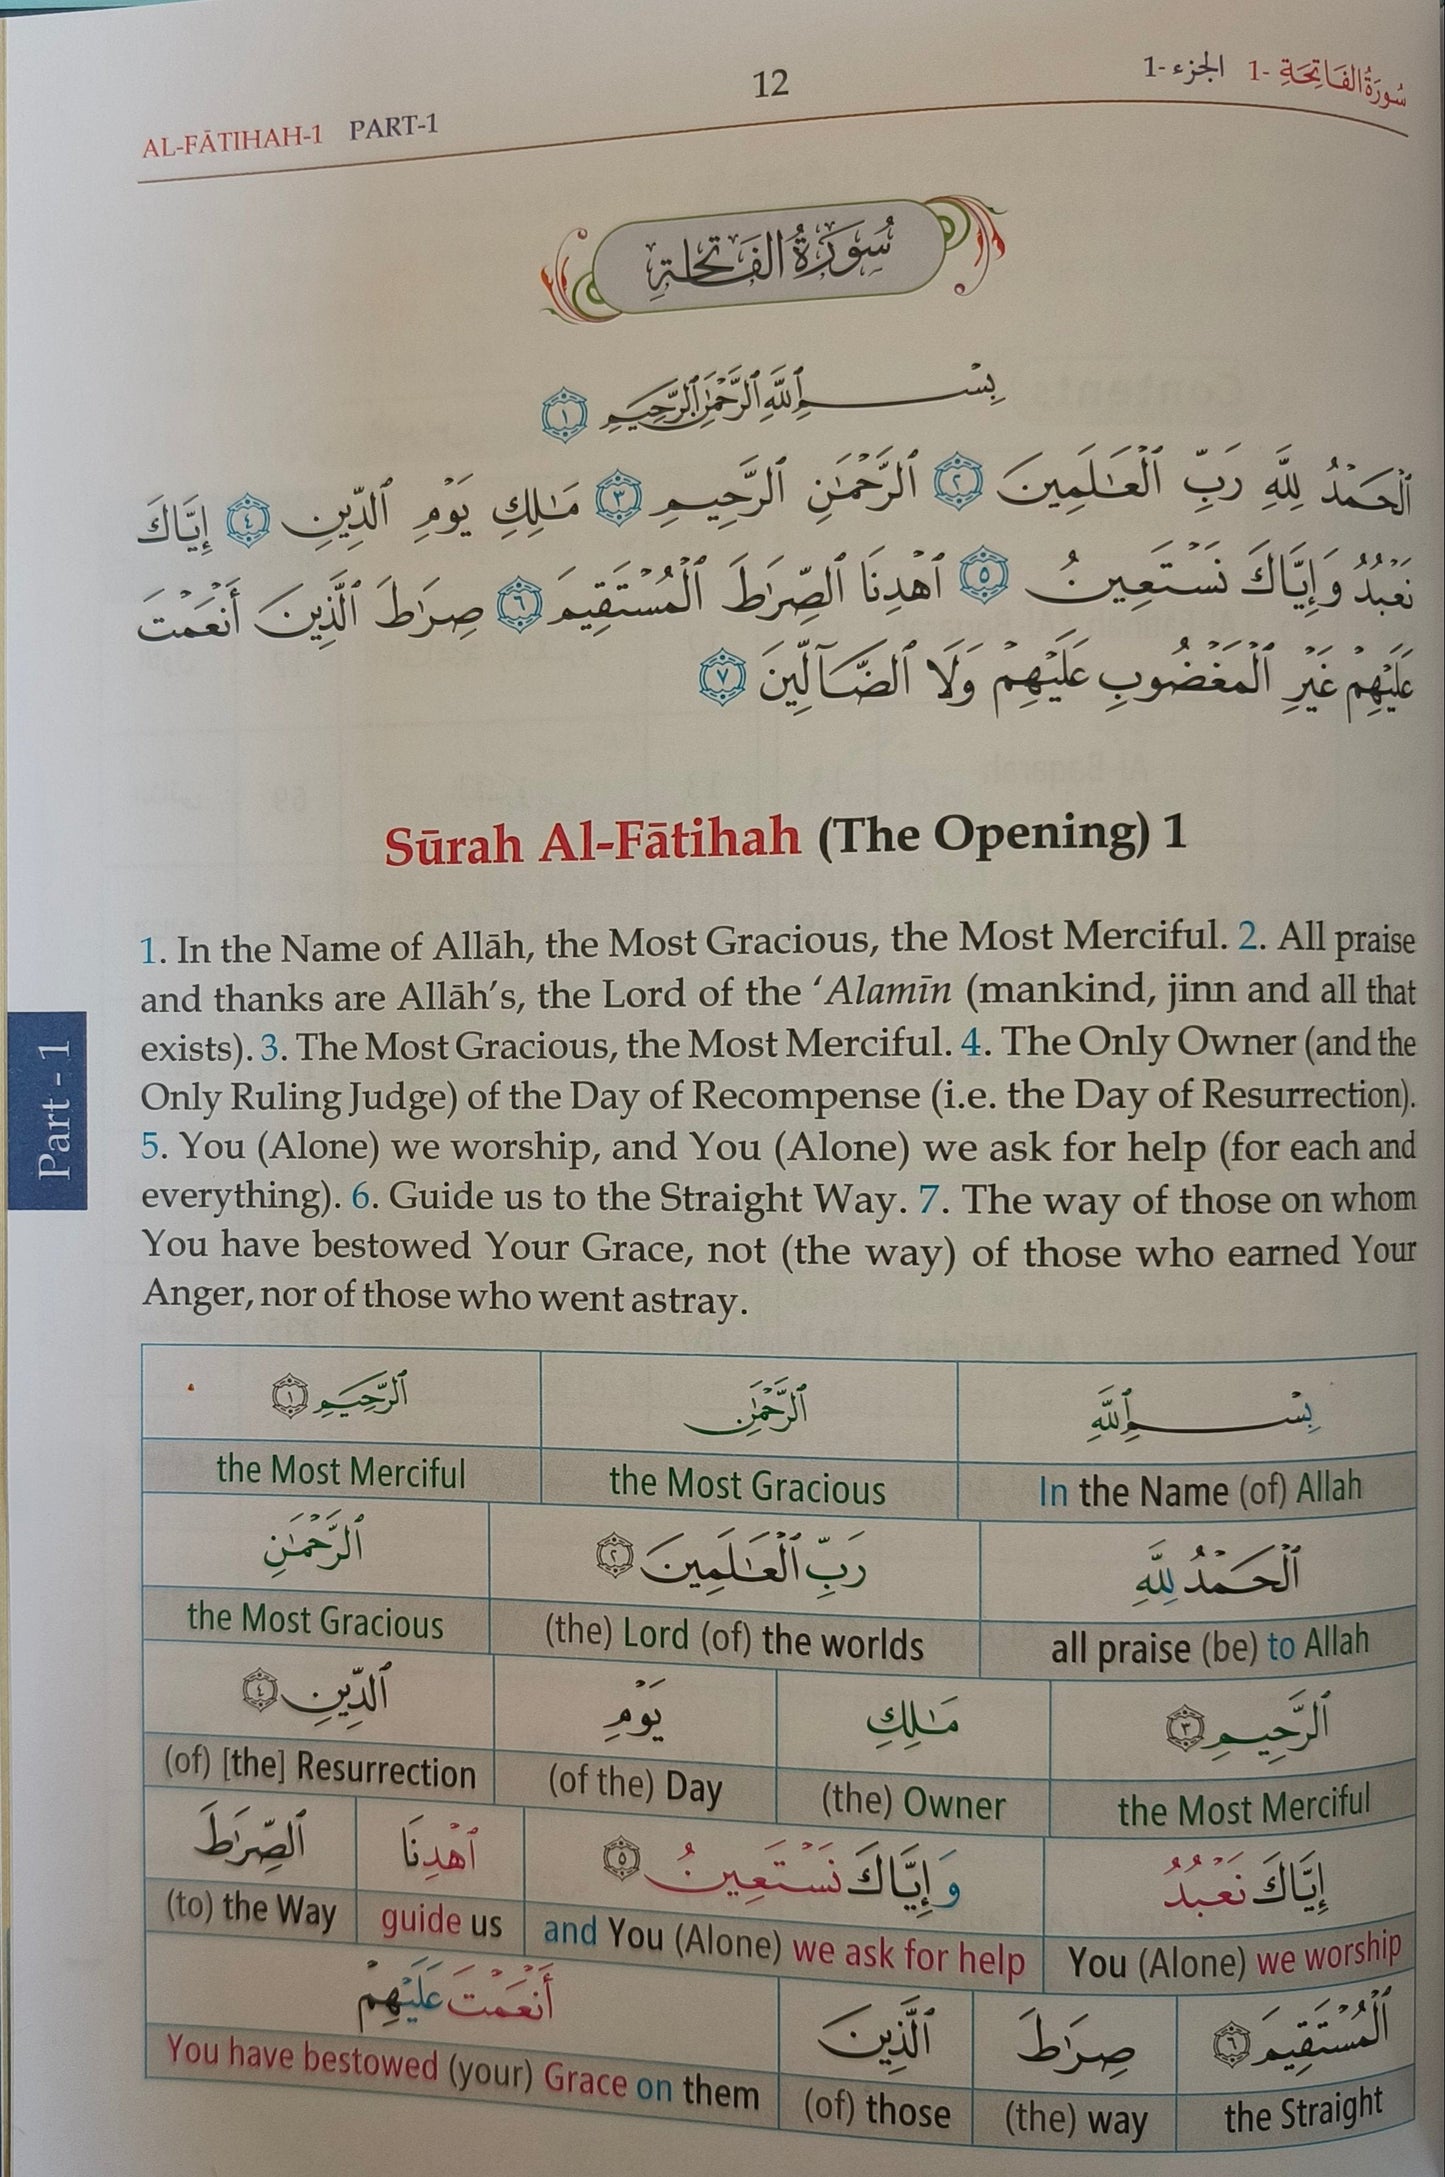 AL-FĀTIHAH-1 PART-1 12 الجزء -1 سُورَةُ الفَاتِحَةِ -1
سُورَةُ الفَاتِحَةِ
بِسْمِ ٱللَّهِ ٱلرَّحْمَٰنِ ٱلرَّحِيمِ ١
ٱلْحَمْدُ لِلَّهِ رَبِّ ٱلْعَٰلَمِينَ ٢ ٱلرَّحْمَٰنِ ٱلرَّحِيمِ ٣ مَٰلِكِ يَوْمِ ٱلدِّينِ ٤ إِيَّاكَ
نَعْبُدُ وَإِيَّاكَ نَسْتَعِينُ ٥ ٱهْدِنَا ٱلصِّرَٰطَ ٱلْمُسْتَقِيمَ ٦ صِرَٰطَ ٱلَّذِينَ أَنْعَمْتَ
عَلَيْهِمْ غَيْرِ ٱلْمَغْضُوبِ عَلَيْهِمْ وَلَا ٱلضَّآلِّينَ ٧
Sūrah Al-Fātihah (The Opening) 1
1. In the Name of Allāh, the Most Gracious, the Most Merciful. 2. All praise
and thanks are Allāh's, the Lord of the ‘Alamīn (mankind, jinn and all that
exists). 3. The Most Gracious, the Most Merciful. 4. The Only Owner (and the
Only Ruling Judge) of the Day of Recompense (i.e. the Day of Resurrection).
5. You (Alone) we worship, and You (Alone) we ask for help (for each and
everything). 6. Guide us to the Straight Way. 7. The way of those on whom
You have bestowed Your Grace, not (the way) of those who earned Your
Anger, nor of those who went astray.
Part - 1
بِسْمِ ٱللَّهِ ٱلرَّحْمَٰنِ ٱلرَّحِيمِ ١
the Most Merciful the Most Gracious In the Name (of) Allah
ٱلْحَمْدُ لِلَّهِ رَبِّ ٱلْعَٰلَمِينَ ٢ ٱلرَّحْمَٰنِ
the Most Gracious (the) Lord (of) the worlds all praise (be) to Allah
ٱلرَّحِيمِ ٣ مَٰلِكِ يَوْمِ ٱلدِّينِ ٤
(of) [the] Resurrection (of the) Day (the) Owner the Most Merciful
إِيَّاكَ نَعْبُدُ وَإِيَّاكَ نَسْتَعِينُ ٥ ٱهْدِنَا ٱلصِّرَٰطَ
(to) the Way guide us and You (Alone) we ask for help You (Alone) we worship
ٱلْمُسْتَقِيمَ ٦ صِرَٰطَ ٱلَّذِينَ أَنْعَمْتَ عَلَيْهِمْ
You have bestowed (your) Grace on them (of) those (the) way the Straight